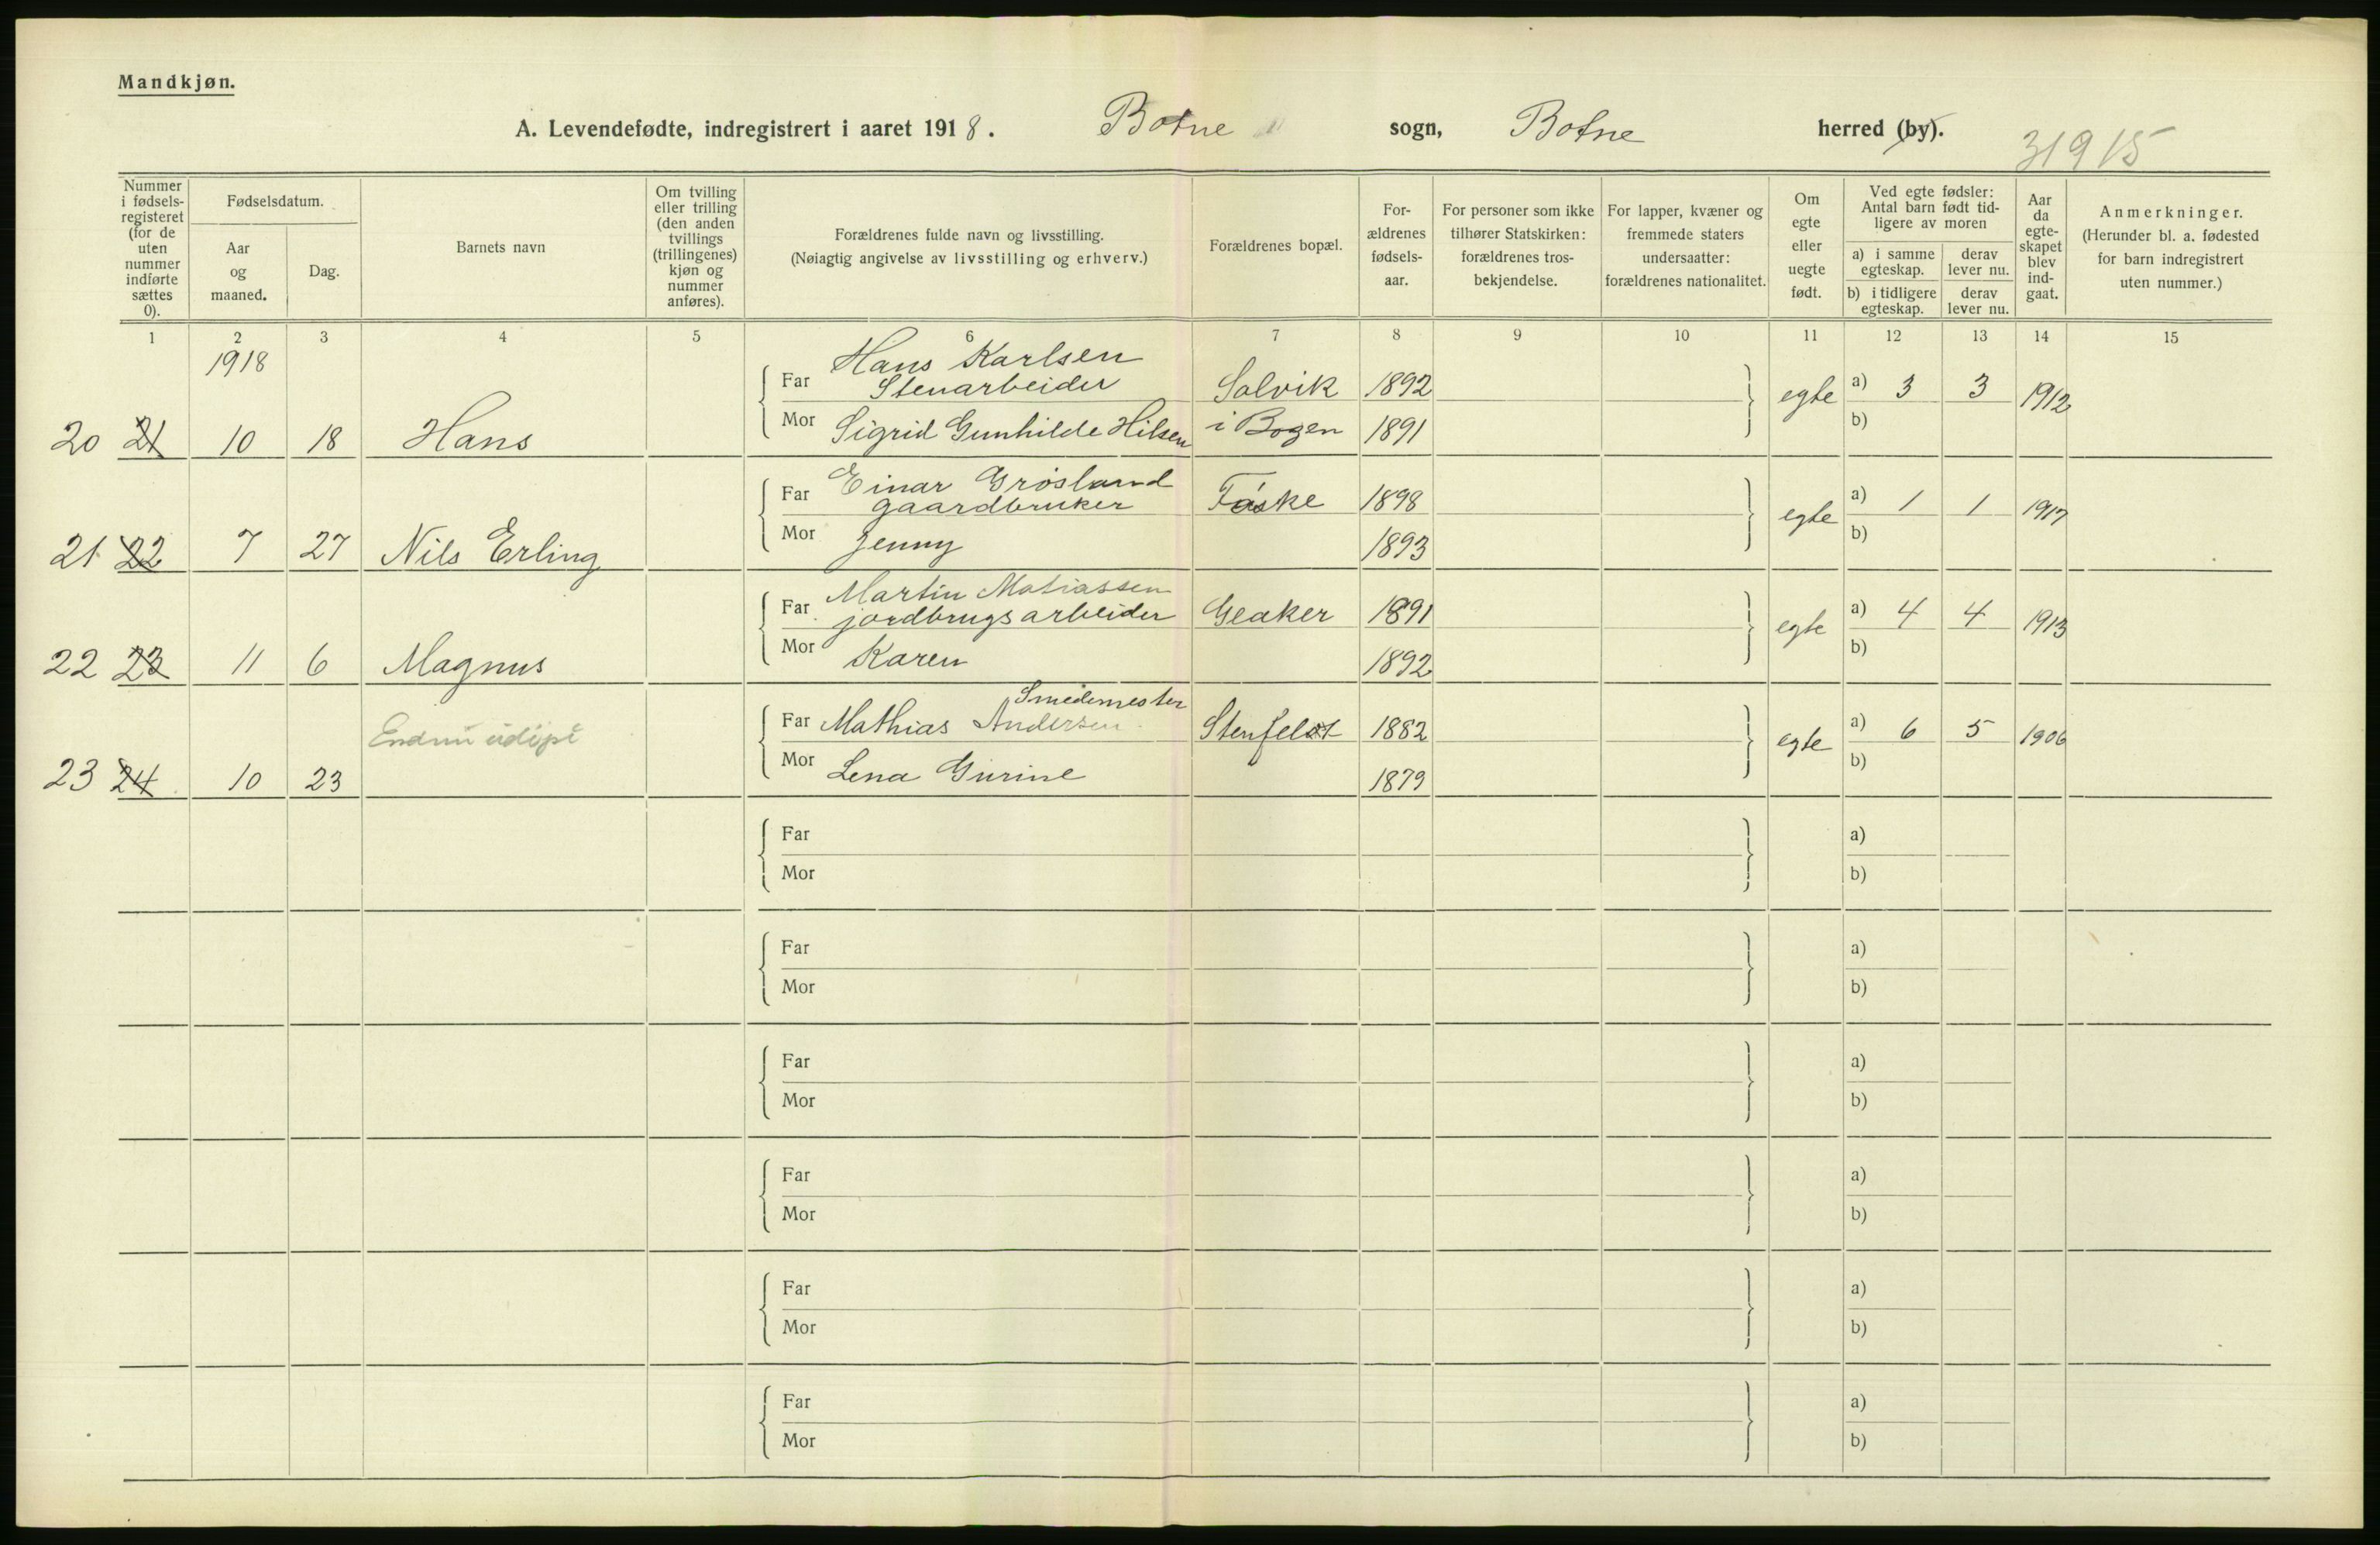 Mandkjøn.
A. Levendefødte, indregistrert i aaret 1918. Botne sogn, Botne herred (by).
31915
Nummer i fødsels-registeret (for de uten nummer indførte sættes 0).
Fødselsdatum.
Aar og maaned.
Dag.
Barnets navn
Om tvilling eller trilling (den anden tvillings (trillingenes) kjøn og nummer anføres).
Forældrenes fulde navn og livsstilling.
(Nøiagtig angivelse av livsstilling og erhverv.)
Forældrenes bopæl.
For-ældrenes fødsels-aar.
For personer som ikke tilhører Statskirken: forældrenes tros-bekjendelse.
For lapper, kvæner og fremmede staters undersaatter: forældrenes nationalitet.
Om egte eller uegte født.
Ved egte fødsler: Antal barn født tid-ligere av moren
a) i samme egteskap. derav lever nu.
b) i tidligere egteskap. derav lever nu.
Aar da egte-skapet blev ind-gaat.
Anmerkninger.
(Herunder bl. a. fødested for barn indregistrert uten nummer.)
1 2 3 4 5 6 7 8 9 10 11 12 13 14 15
1918
Far Hans Karlsen
Stenarbeider Solvik 1892 egte a) 3 3 1912
20 21 10 18 Hans Mor Sigrid Gunhilde Hilsen i Bogen 1891 b)
Far Einar Grøsland
gaardbruker Føske 1898 egte a) 1 1 1917
21 22 7 27 Nils Erling Mor Jenny 1893 b)
Far Martin Matiassen
jordbrugsarbeider Geaker 1891 egte a) 4 4 1913
22 23 11 6 Magnus Mor Karen 1892 b)
Smedemester
Endnu udøpt Far Mathias Andersen Stenfeldt 1882 egte a) 6 5 1906
23 24 10 23 Mor Lena Gurine 1879 b)
Far a)
Mor b)
Far a)
Mor b)
Far a)
Mor b)
Far a)
Mor b)
Far a)
Mor b)
Far a)
Mor b)